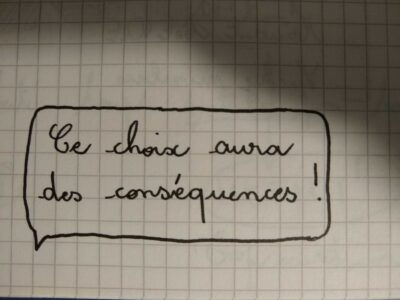 Ce choix aura
des conséquences !